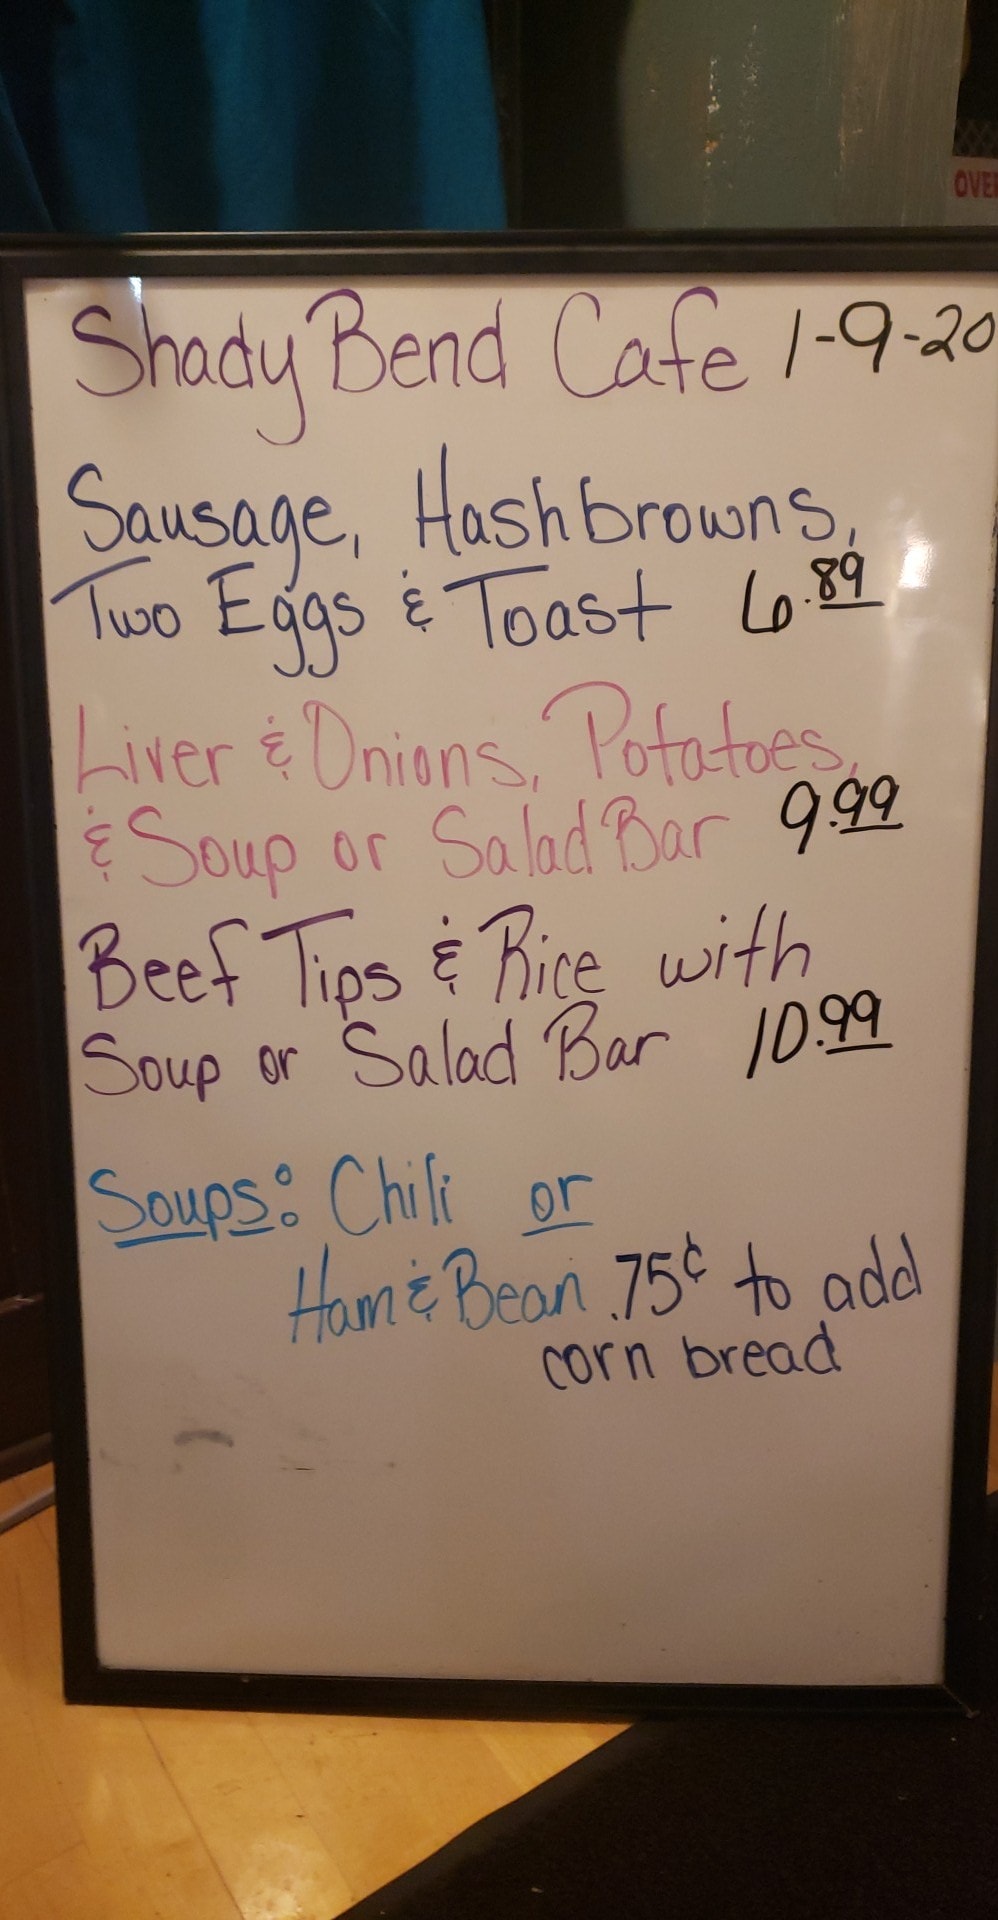 OVE
Shady Bend Cafe 1-9-20
Sausage, Hashbrowns,
Two Eggs & Toast 6.89
Liver & Onions, Potatoes,
& Soup or Salad Bar 9.99
Beef Tips & Rice with
Soup or Salad Bar 10.99
Soups: Chili or
Ham & Bean .75¢ to add
corn bread